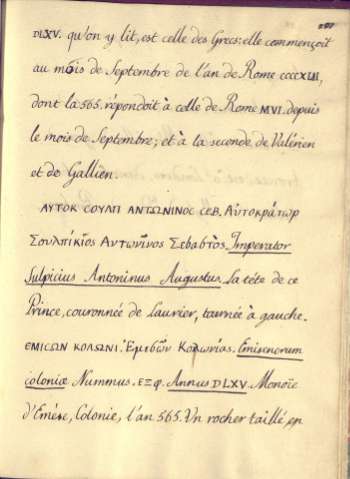 DLXV. qu'on y lit, est celle des Grecs: elle commençoit
au mois de Septembre de l'an de Rome CCCCXLII,
dont la 565. répondoit à celle de Rome MVI. depuis
le mois de Septembre; et à la seconde de Valérien
et de Gallien.
ΑΥΤΟΚ СΟΥΛΠ ΑΝΤѠΝΙΝΟС СЄΒ. Αὐτοκράτωρ
Σουλπίκιος Αντωνῖνος Σεβαϛὸς. Imperator
Sulpicius Antoninus Augustus. La tête de ce
Prince, couronnée de Laurier, tournée à gauche.
ЄΜΙСѠΝ ΚΟΛѠΝΙ. Ἐμισῶν Κολωνίας. Emisenorum
coloniæ Nummus. ЄΞΦ. Annus DLXV. Monoïe
d'Emèse, Colonie, l'an 565. Un rocher taillé, en